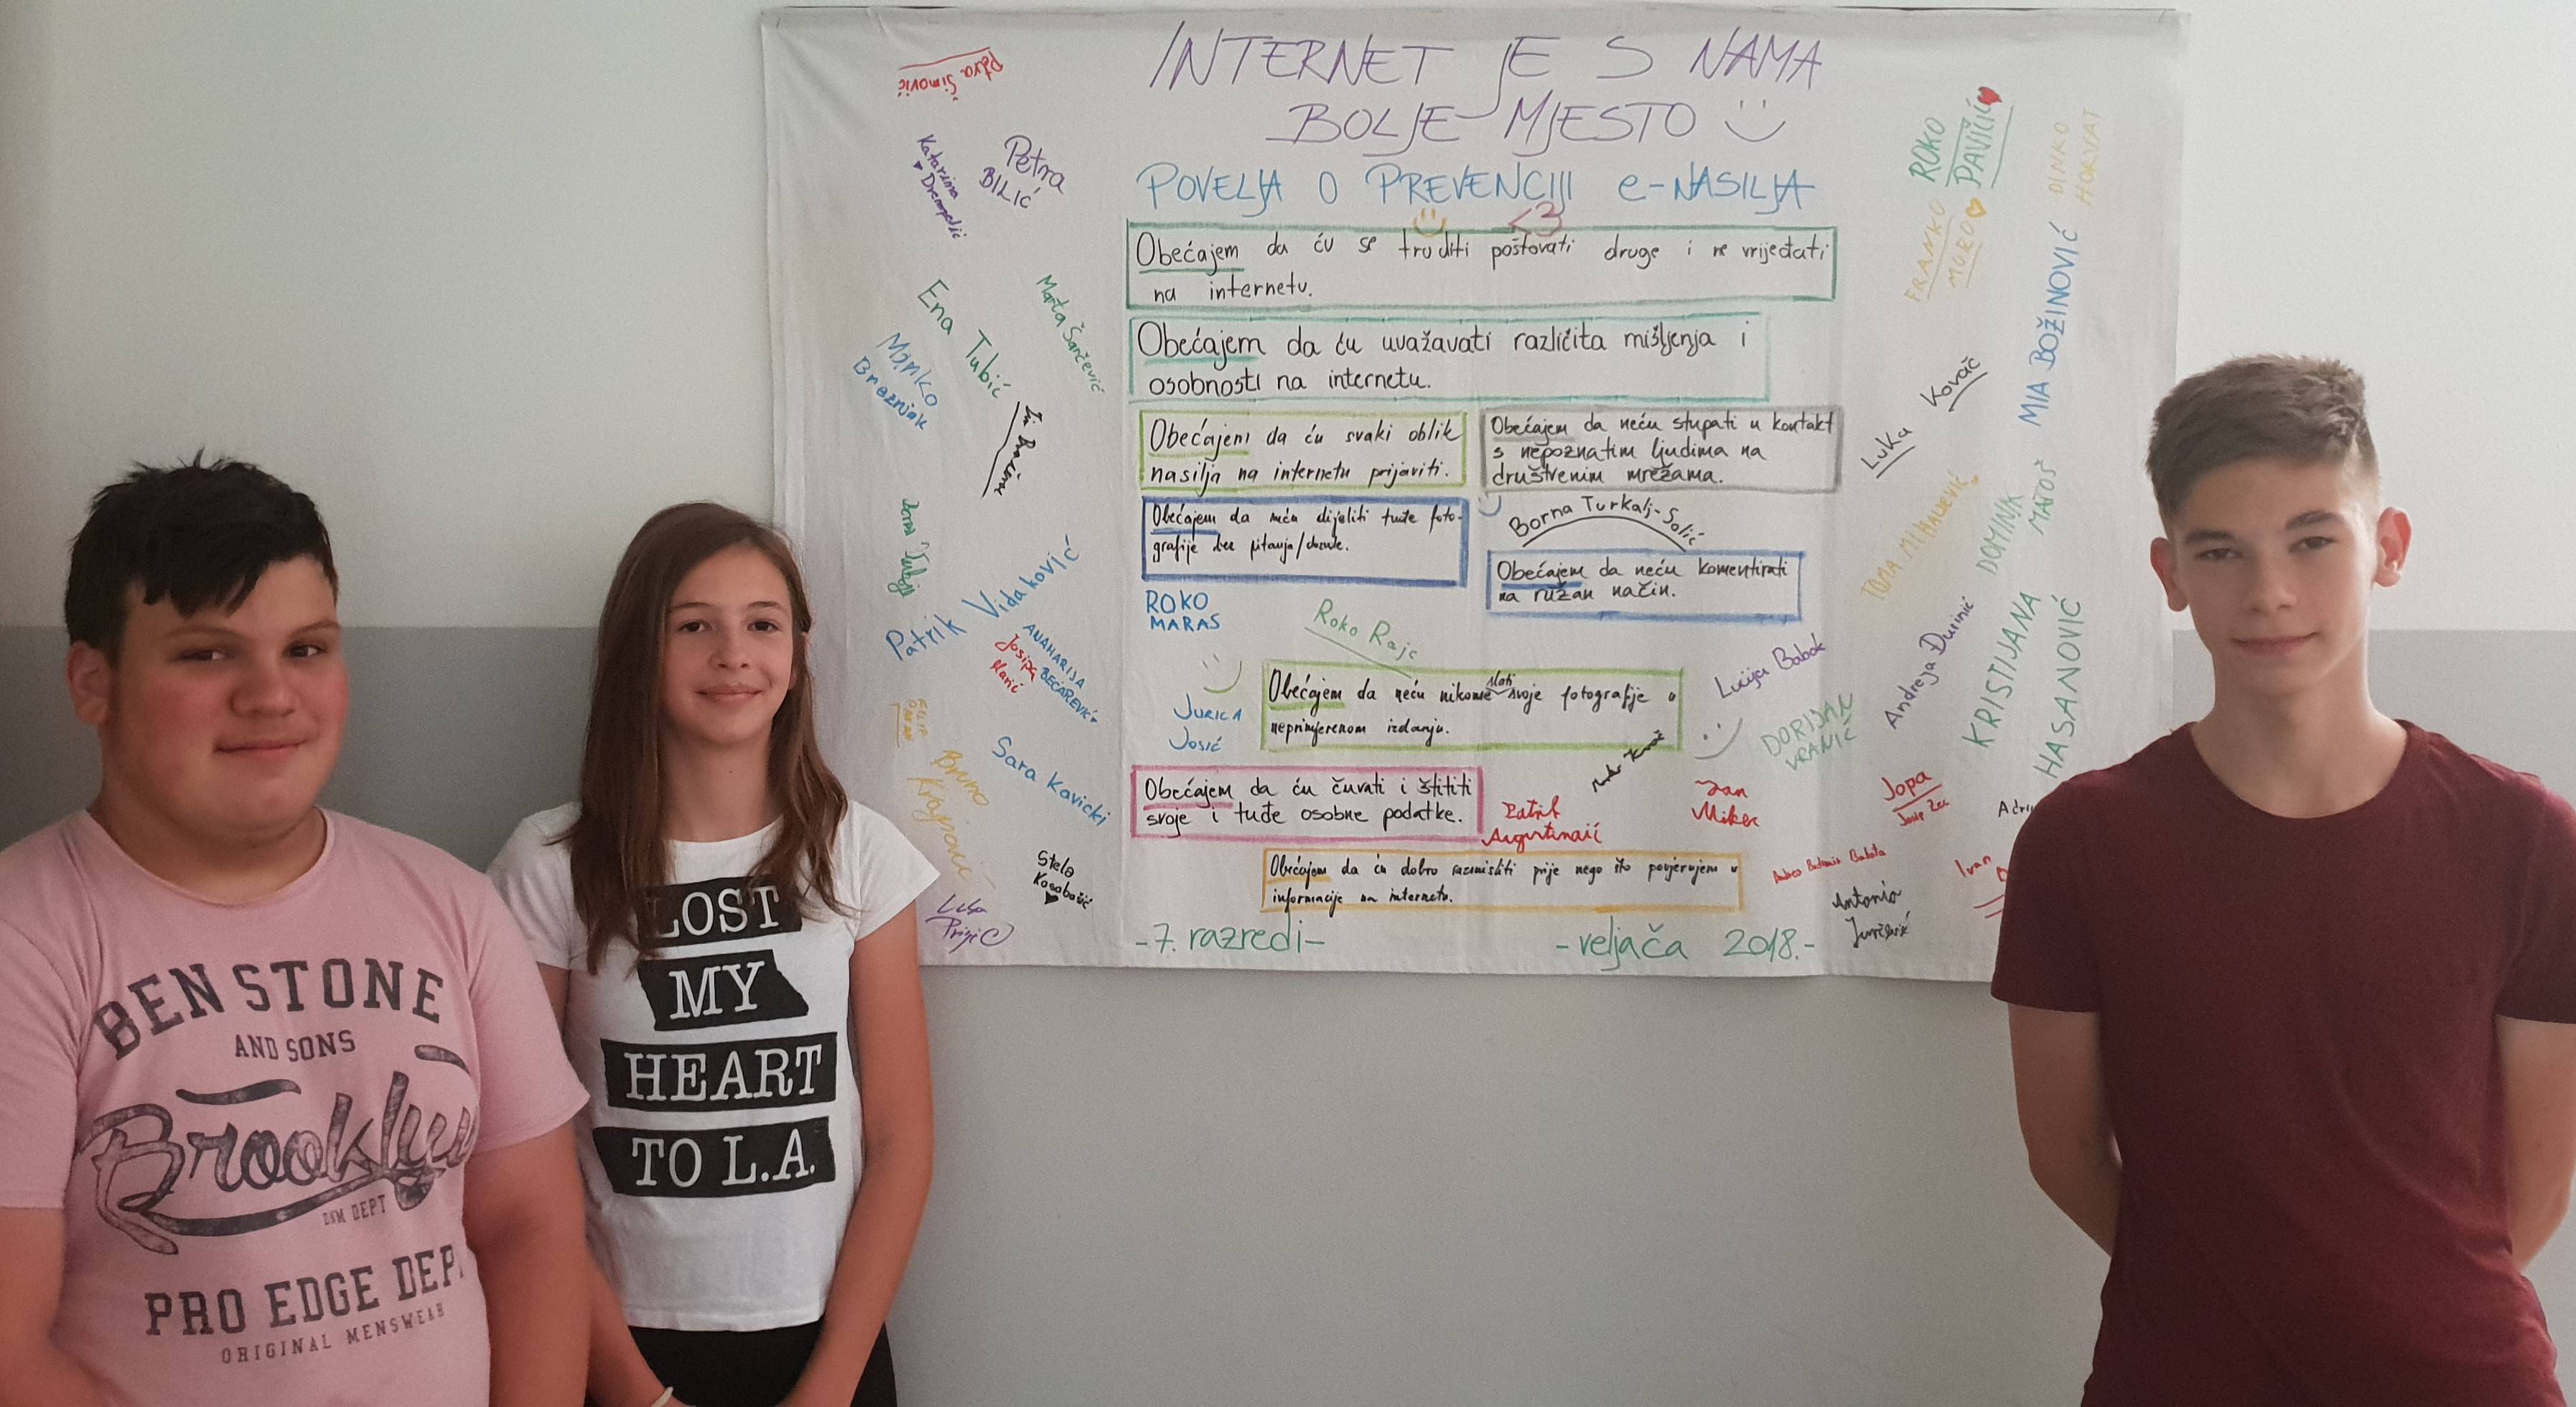 INTERNET JE S NAMA
BOLJE MJESTO
POVELJA O PREVENCIJI e-NASILJA
<3
Obećajem da ću se truditi poštovati druge i ne vrijeđati
na internetu.
Obećajem da ću uvažavati različita mišljenja i
osobnosti na internetu.
Obećajem da ću svaki oblik
nasilja na internetu prijaviti.
Obećajem da neću stupati u kontakt
s nepoznatim ljudima na
društvenim mrežama.
Obećajem da neću dijeliti tuđe foto-
grafije bez pitanja/dozvole.
Borna Turkalj-Solić
Obećajem da neću komentirati
na ružan način.
ROKO
MARAS
Roko Rajc
JURICA
JOSIĆ
Obećajem da neću nikome slati svoje fotografije u
neprimjerenom izdanju.
Obećajem da ću čuvati i štititi
svoje i tuđe osobne podatke.
Jan
Mikec
Obećajem da ću dobro razmisliti prije nego što povjerujem u
informacije na internetu.
-7. razredi-
-veljača 2018.-
Petra Šimović
Katarina
Petra
BILIĆ
Ena Tubić
Marta Šarčević
Marko
Breznjak
Patrik Vidaković
ANAMARIJA
BEĆAREVIĆ
Josipa
Sara Kavicki
Bruno
Krajnović
Stela
ROKO
PAVIČIĆ
FRANKO
MURO
DINKO
HORVAT
MIA BOŽINOVIĆ
Luka Kovač
TOMA MIHALJEVIĆ
DOMINIK
MATOŠ
Lucija Babok
Andreja Đurinić
KRISTIJANA
HASANOVIĆ
DORIJAN
VRANIĆ
Jopa
Josip Zec
Ivan
Antonio
BEN STONE
AND SONS
Brooklyn
DNM DEPT
PRO EDGE DEP.
ORIGINAL MENSWEAR
LOST
MY
HEART
TO L.A.